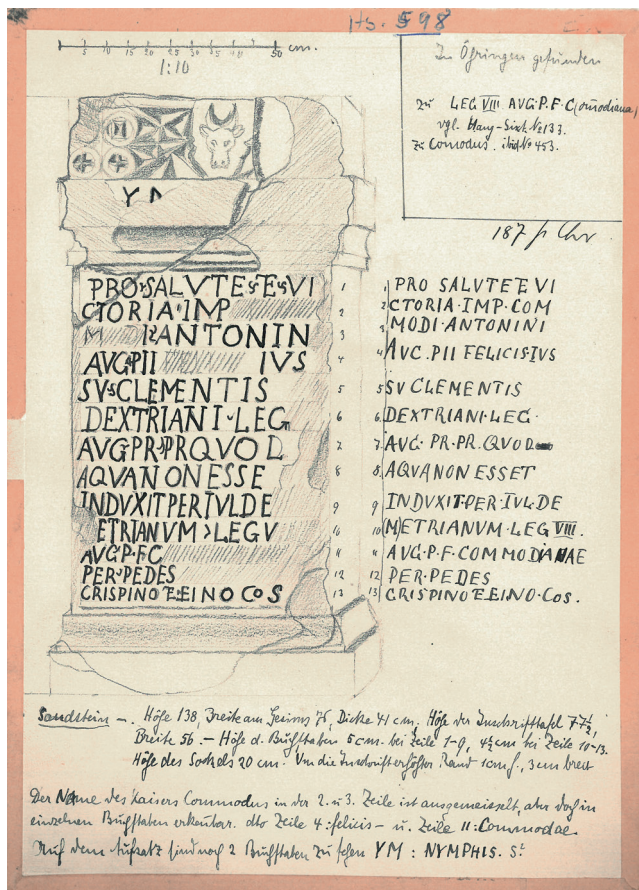 Hs. 598
5 10 15 20 25 30 50 cm.
1:10
In Öhringen gefunden
zu LEG VIII AVG·P.F.C(omodiana)
vgl. Haug-Sixt № 133.
zu Comodus. ibid № 453.
187 p Chr
Y M
PRO SALVTE E VI
CTORIA IMP
M ANTONIN
AVG PII IVS
SVS CLEMENTIS
DEXTRIANI LEG
AVG PR PR QVOD
AQVA NON ESSE
INDVXIT PER IVL DE
ETRIANVM > LEG V
AVG P F C
PER PEDES
CRISPINO E EINO COS
1
2
3
4
5
6
7
8
9
10
11
12
13
1 PRO SALVTE E VI
2 CTORIA·IMP·COM
3 MODI·ANTONINI
4 AVC.PII FELICIS·IVS
5 SV CLEMENTIS
6. DEXTRIANI·LEG·
7. AVG. PR.PR. QVOD
8. AQVA NON ESSET
9 INDVXIT·PER·IVL·DE
10 METRIANVM·LEG VIII.
11 AVG.P.F.COMMODIANAE
12 PER·PEDES
13 CRISPINO E EINO·COS.
Sandstein –. Höhe 138, Breite am Gesims 76, Dicke 41 cm. Höhe der Inschrifttafel 77½,
Breite 56. – Höhe d. Buchstaben 5 cm. bei Zeile 1-9, 4½ cm bei Zeile 10-13.
Höhe des Sockels 20 cm. Um die Inschrift erhöhter Rand 1 cm h, 3 cm breit
Der Name des Kaisers Commodus in der 2. u 3. Zeile ist ausgemeisselt, aber doch in
einzelnen Buchstaben erkenbar. dto Zeile 4: felicis – u. Zeile 11: Commodae
Auf dem Aufsatz sind noch 2 Buchstaben zu sehen YM : NYMPHIS. St